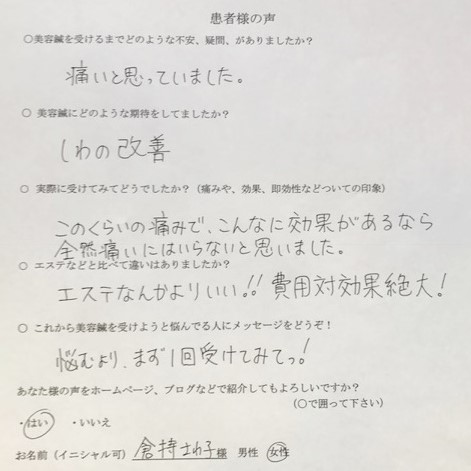 患者様の声
○美容鍼を受けるまでどのような不安、疑問、がありましたか？
痛いと思っていました。
○ 美容鍼にどのような期待をしてましたか？
しわの改善
○ 実際に受けてみてどうでしたか？（痛みや、効果、即効性などついての印象）
このくらいの痛みで、こんなに効果があるなら
全然痛いにはいらないと思いました。
○ エステなどと比べて違いはありましたか？
エステなんかよりいい!! 費用対効果絶大!
○ これから美容鍼を受けようと悩んでる人にメッセージをどうぞ！
悩むより、まず1回受けてみてっ!
あなた様の声をホームページ、ブログなどで紹介してもよろしいですか？
（○で囲って下さい）
・はい ・いいえ
お名前（イニシャル可） 倉持さわ子様 男性 女性